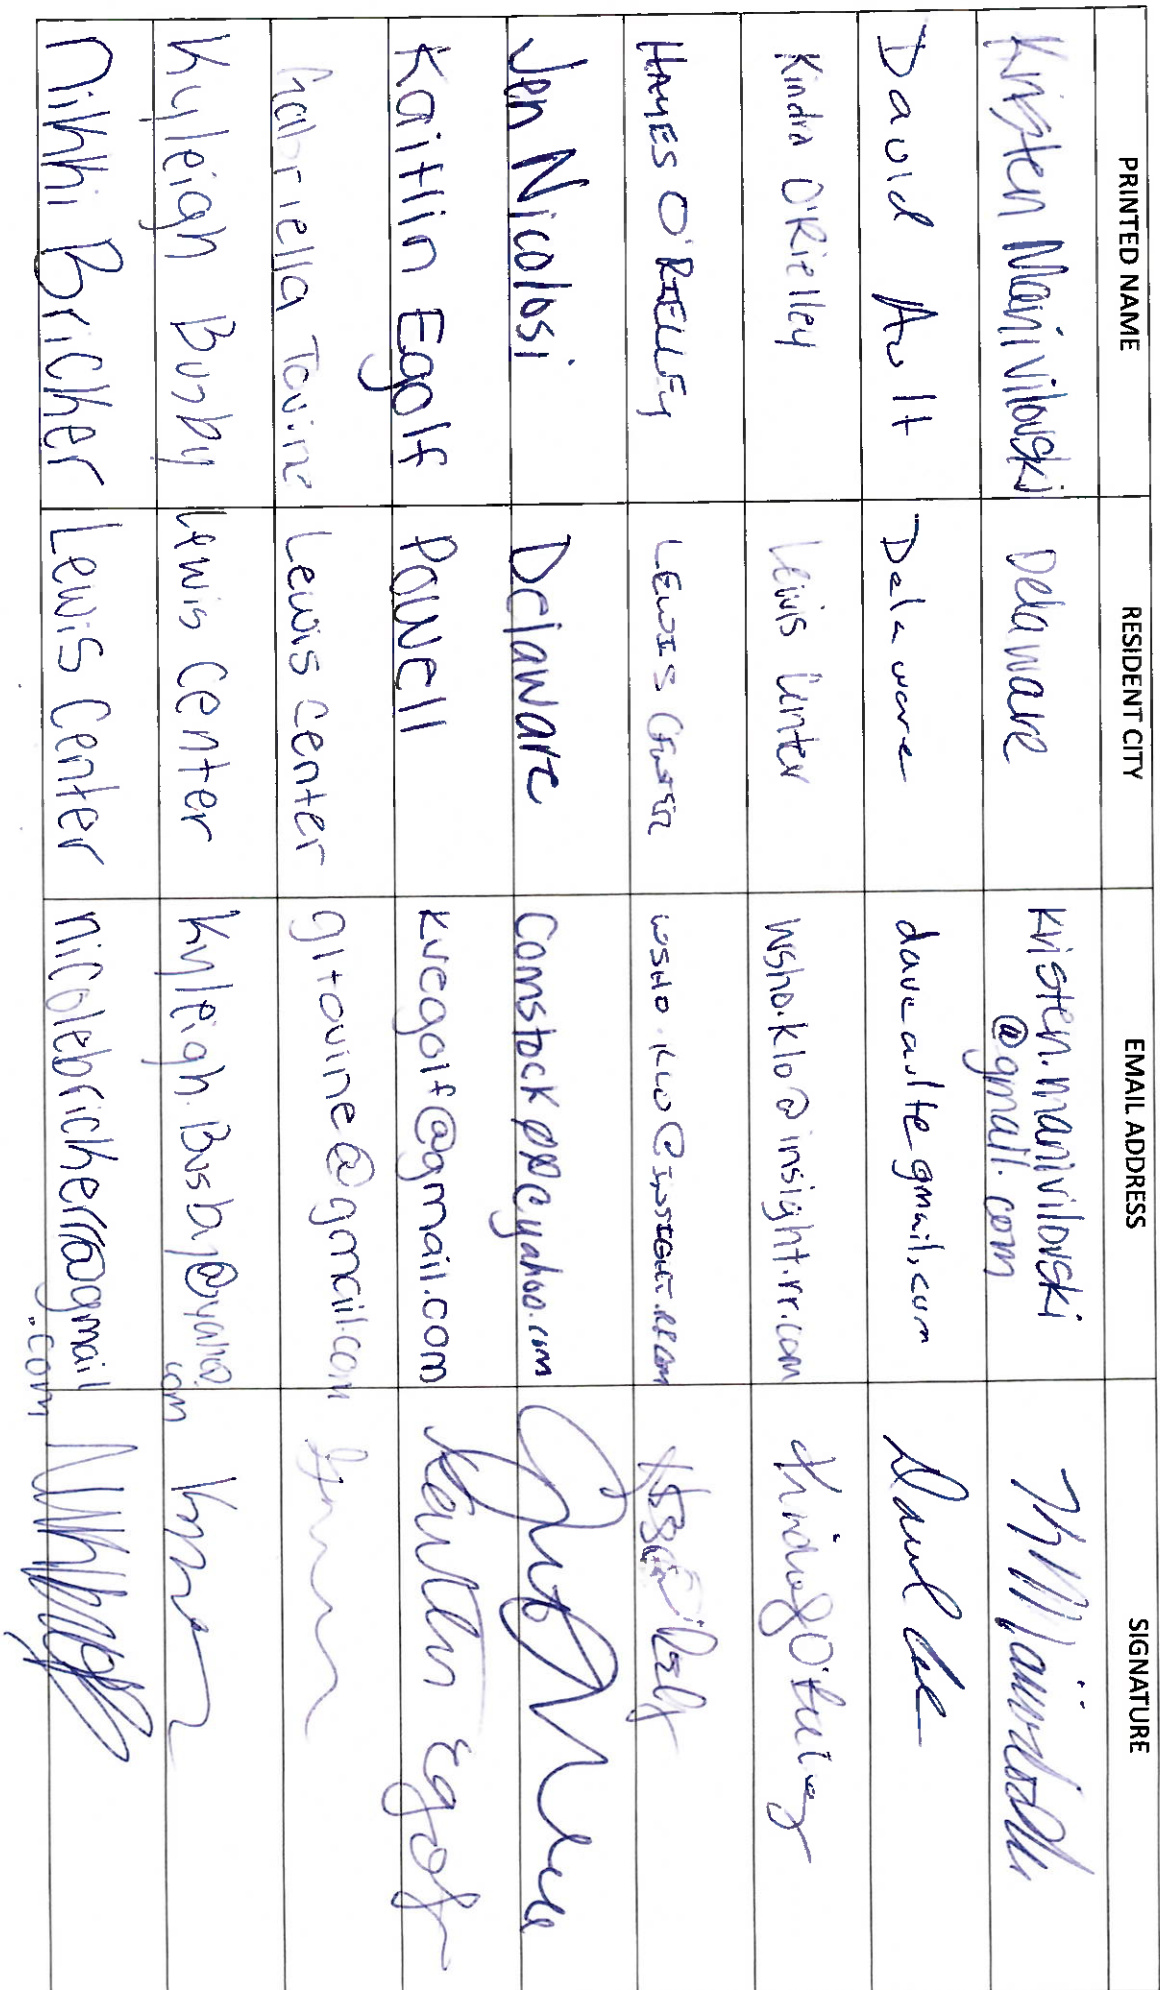 PRINTED NAME RESIDENT CITY EMAIL ADDRESS SIGNATURE
Kristen Manivilovski Delaware kristen.manivilovski
@gmail.com
David Ault Delaware daveault@gmail.com
Kindra O'Rielley Lewis Center wsho.klo@insight.rr.com
HAYES O'RIELLEY LEWIS CENTER WSHO.KLO@INSIGHT.RR.COM
Jen Nicolosi Delaware
Kaitlin Egolf Powell kvegolf@gmail.com Kaitlin Egolf
Gabriella Tovine Lewis Center gltovine@gmail.com
Kyleigh Busby Lewis Center Kyleigh.Busby@yahoo.
com
Nikki Bricher Lewis Center nicolebricher@gmail
.com